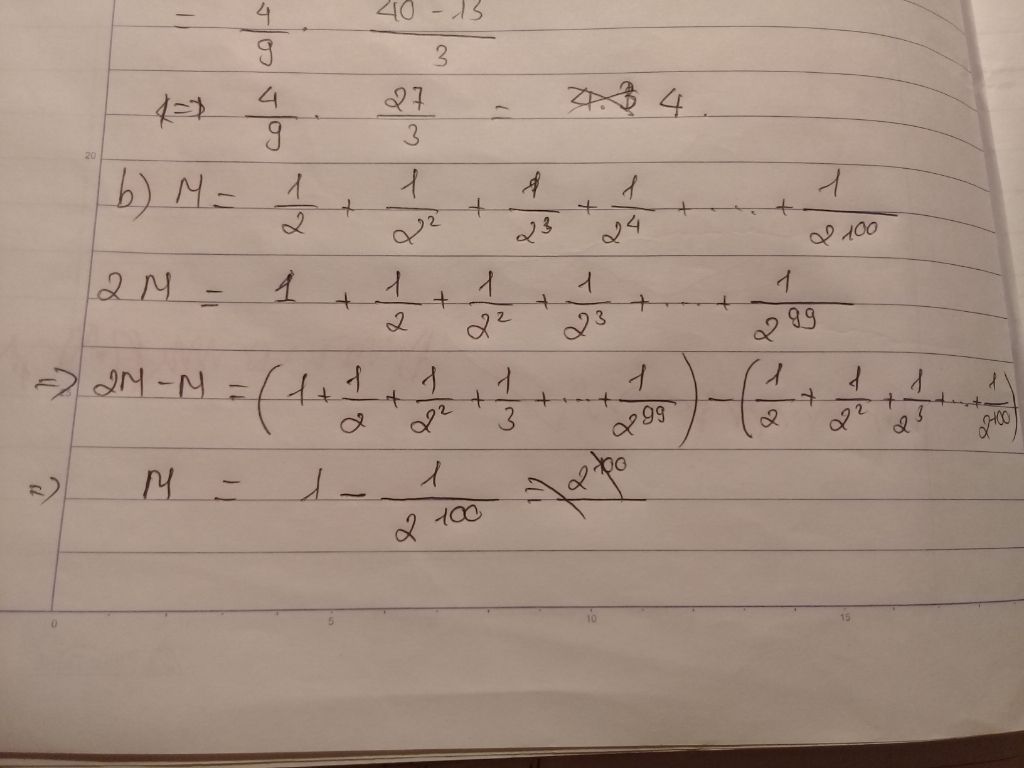 = 4/9 . (40 - 13)/3
<=> 4/9 . 27/3 = 4.3 4.
20
b) M = 1/2 + 1/2² + 1/2³ + 1/2⁴ + ..... + 1/2¹⁰⁰
2M = 1 + 1/2 + 1/2² + 1/2³ + ..... + 1/2⁹⁹
=> 2M - M = (1 + 1/2 + 1/2² + 1/3 + .... + 1/2⁹⁹) - (1/2 + 1/2² + 1/2³ + ... + 1/2¹⁰⁰)
=> M = 1 - 1/2¹⁰⁰ = 2¹⁰⁰
0 5 10 15